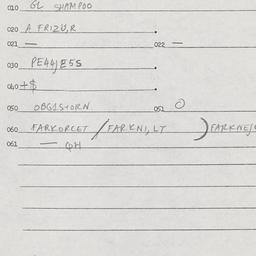 010 GL SHAMPOO
020 A FRIZU,R
021 — 022 —
030 PE44JE5S
040 +$
050 OBG1S+ORN 051 O
060 FARKORCET / FAR.KNI, LT ) FARKNE/
061 — QH